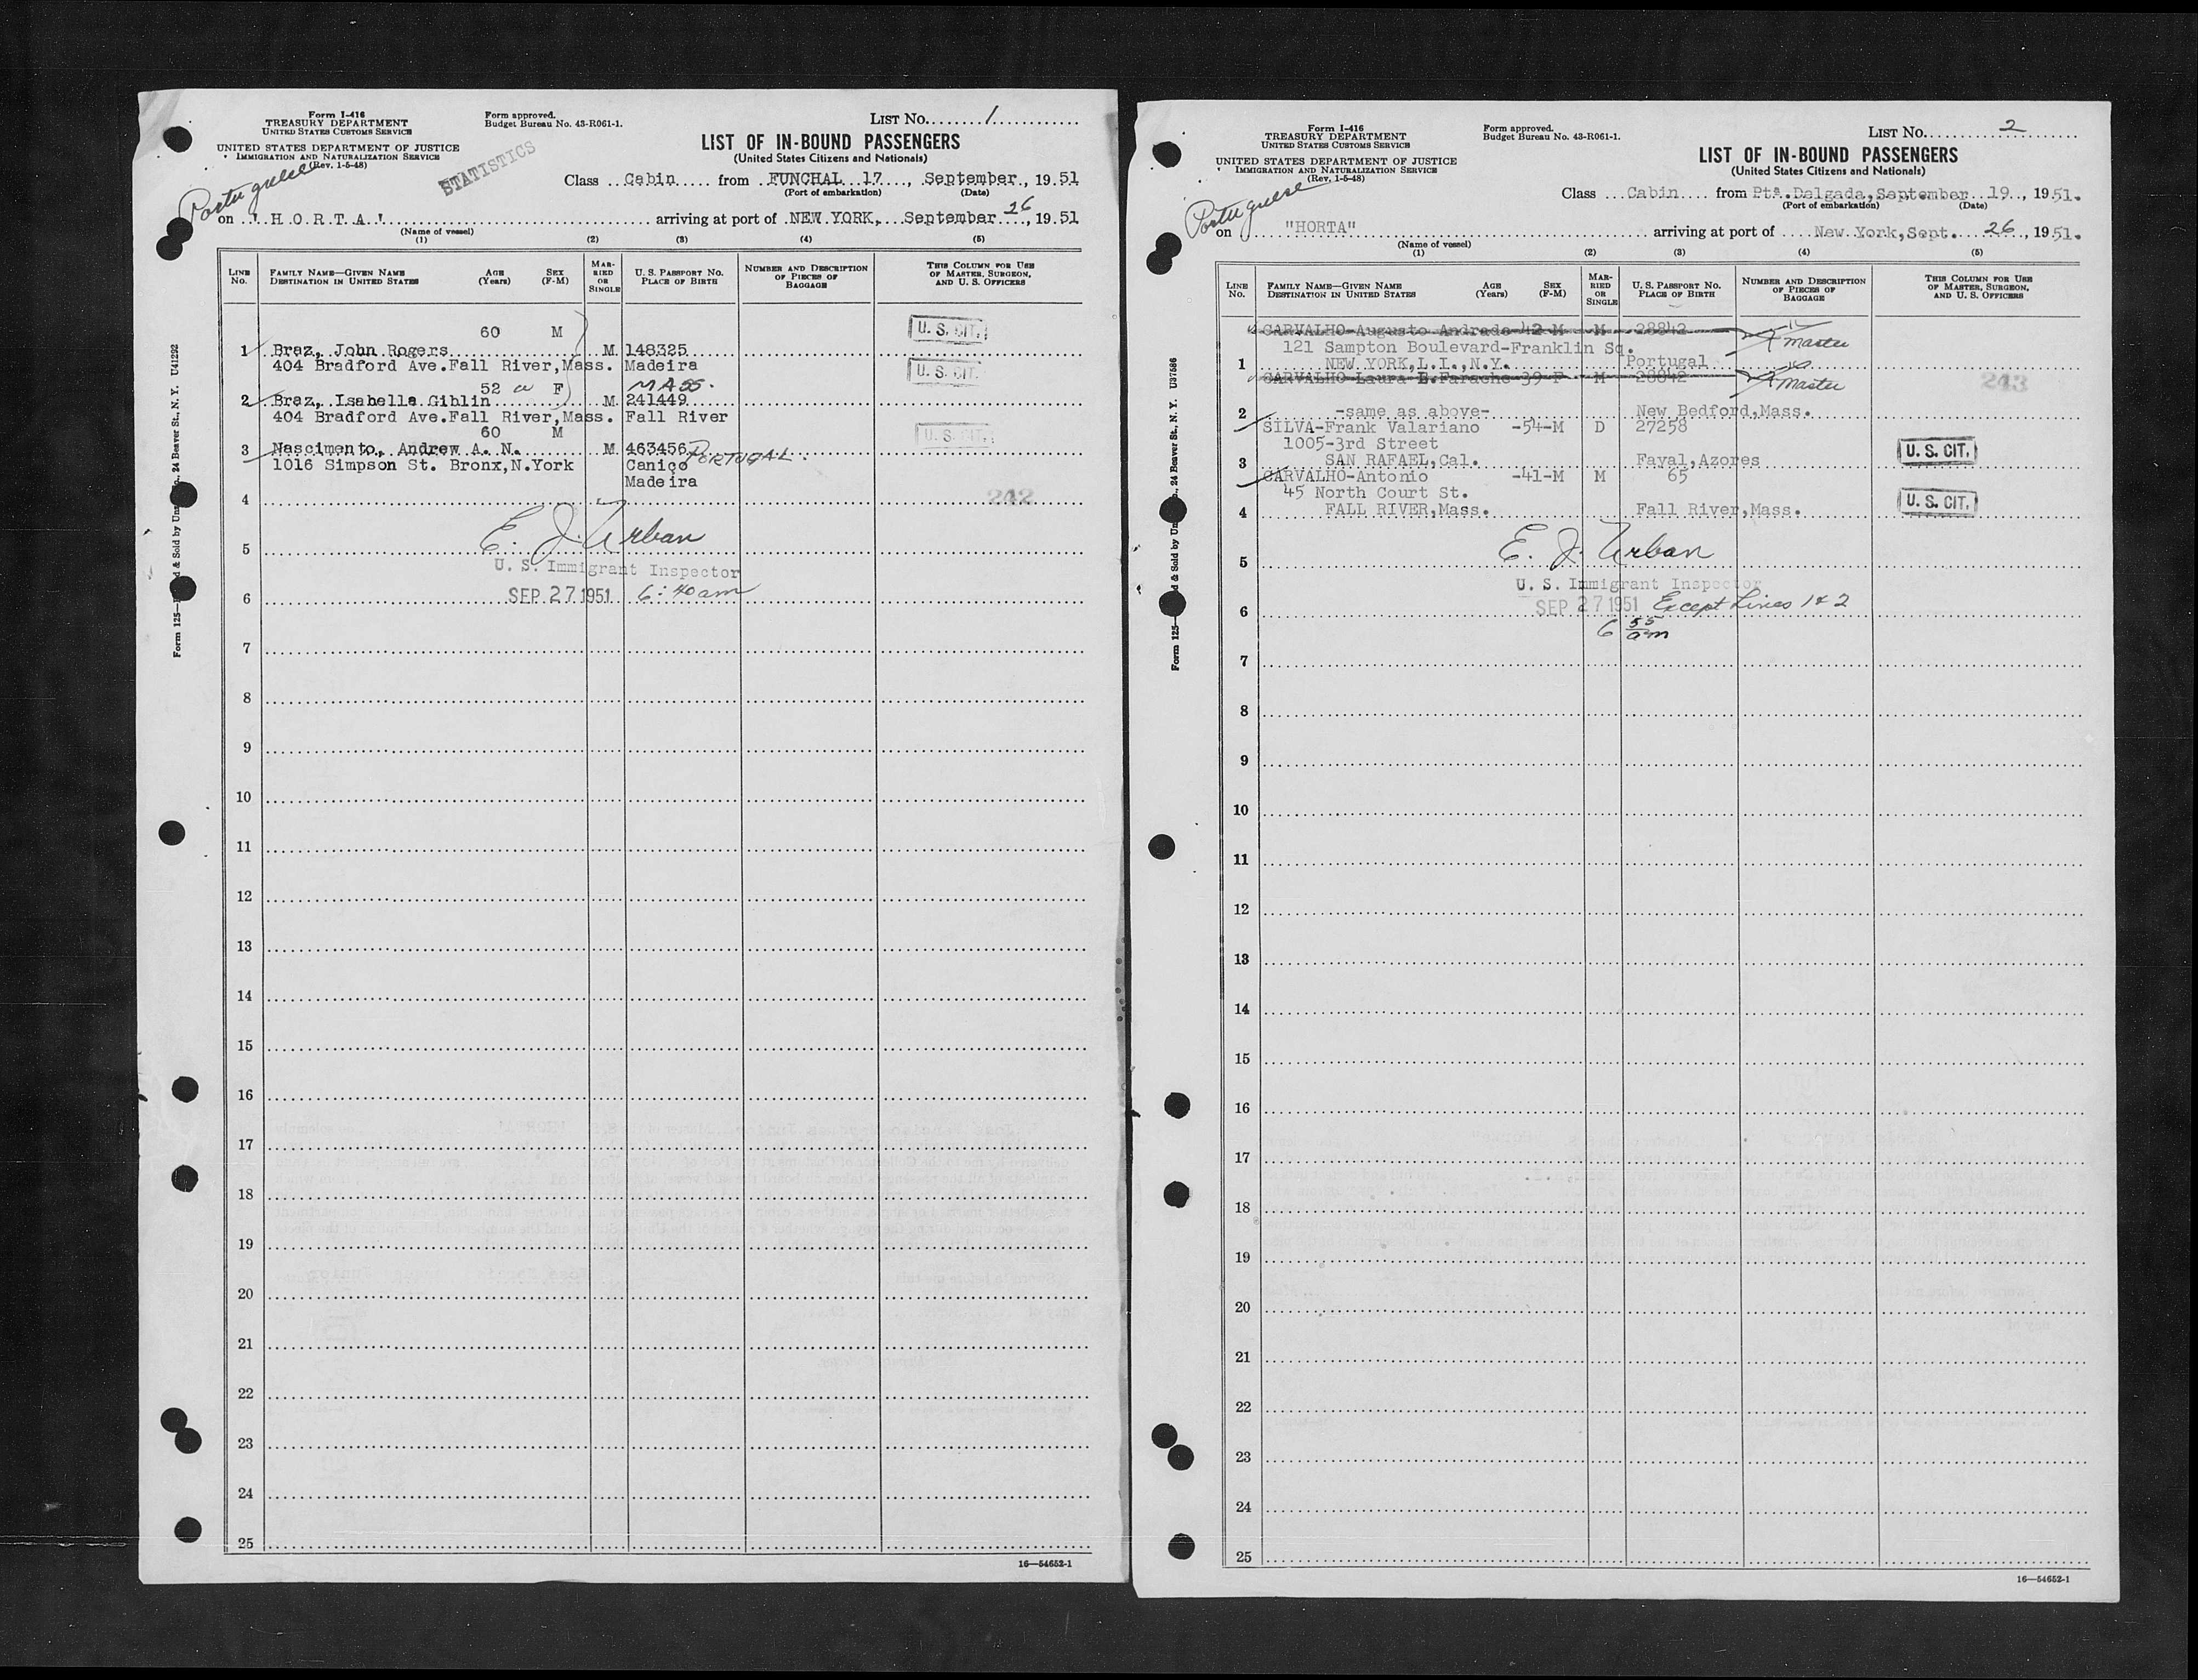 Form I-416
TREASURY DEPARTMENT
UNITED STATES CUSTOMS SERVICE
UNITED STATES DEPARTMENT OF JUSTICE
IMMIGRATION AND NATURALIZATION SERVICE
(Rev. 1-5-48)
Form approved.
Budget Bureau No. 43-R061-1.
LIST No. 1
STATISTICS
LIST OF IN-BOUND PASSENGERS
(United States Citizens and Nationals)
Portuguese
Class Cabin from FUNCHAL 17, September, 1951
(Port of embarkation) (Date)
on 'HORTA' arriving at port of NEW YORK, September 26, 1951
(Name of vessel)
(1) (2) (3) (4) (5)
LINE No. FAMILY NAME—GIVEN NAME DESTINATION IN UNITED STATES AGE (Years) SEX (F-M) MARRIED OR SINGLE U. S. PASSPORT No. PLACE OF BIRTH NUMBER AND DESCRIPTION OF PIECES OF BAGGAGE THIS COLUMN FOR USE OF MASTER, SURGEON, AND U. S. OFFICERS
60 M U. S. CIT.
1 Braz, John Rogers M 148325
404 Bradford Ave.Fall River,Mass. Madeira U. S. CIT.
52 F MASS.
2 Braz, Isabella Giblin M 241449
404 Bradford Ave.Fall River,Mass. Fall River
60 M U. S. CIT.
3 Nascimento, Andrew A. N. M 463456
1016 Simpson St. Bronx,N.York Caniço PORTUGAL.
Madeira
4 242
E. J. Urban
5
U. S. Immigrant Inspector
6 SEP 27 1951 6:40 am
7
8
9
10
11
12
13
14
15
16
17
18
19
20
21
22
23
24
25
16—54652-1
Form 125— & Sold by , 24 Beaver St., N. Y. U41292
Form I-416
TREASURY DEPARTMENT
UNITED STATES CUSTOMS SERVICE
UNITED STATES DEPARTMENT OF JUSTICE
IMMIGRATION AND NATURALIZATION SERVICE
(Rev. 1-5-48)
Form approved.
Budget Bureau No. 43-R061-1.
LIST No. 2
LIST OF IN-BOUND PASSENGERS
(United States Citizens and Nationals)
Portuguese
Class Cabin from Ptª.Dalgada,September 19, 1951.
(Port of embarkation) (Date)
on "HORTA" arriving at port of New York,Sept. 26, 1951.
(Name of vessel)
(1) (2) (3) (4) (5)
LINE No. FAMILY NAME—GIVEN NAME DESTINATION IN UNITED STATES AGE (Years) SEX (F-M) MARRIED OR SINGLE U. S. PASSPORT No. PLACE OF BIRTH NUMBER AND DESCRIPTION OF PIECES OF BAGGAGE THIS COLUMN FOR USE OF MASTER, SURGEON, AND U. S. OFFICERS
CARVALHO-Augusto Andrade-42-M M 28842
121 Sampton Boulevard-Franklin Sq. master
1 NEW YORK,L.I.,N.Y. Portugal
CARVALHO-Laura E.Farache-39-F M 28842 master 243
2 -same as above- New Bedford,Mass.
SILVA-Frank Valariano -54-M D 27258
1005-3rd Street
3 SAN RAFAEL,Cal. Fayal,Azores U. S. CIT.
CARVALHO-Antonio -41-M M 65
45 North Court St.
4 FALL RIVER,Mass. Fall River,Mass. U. S. CIT.
E. J. Urban
5
U. S. Immigrant Inspector
6 SEP 27 1951 Except Lines 1 & 2
6 55 am
7
8
9
10
11
12
13
14
15
16
17
18
19
20
21
22
23
24
25
16—54652-1
Form 125— d & Sold by , 24 Beaver St., N. Y. U37586